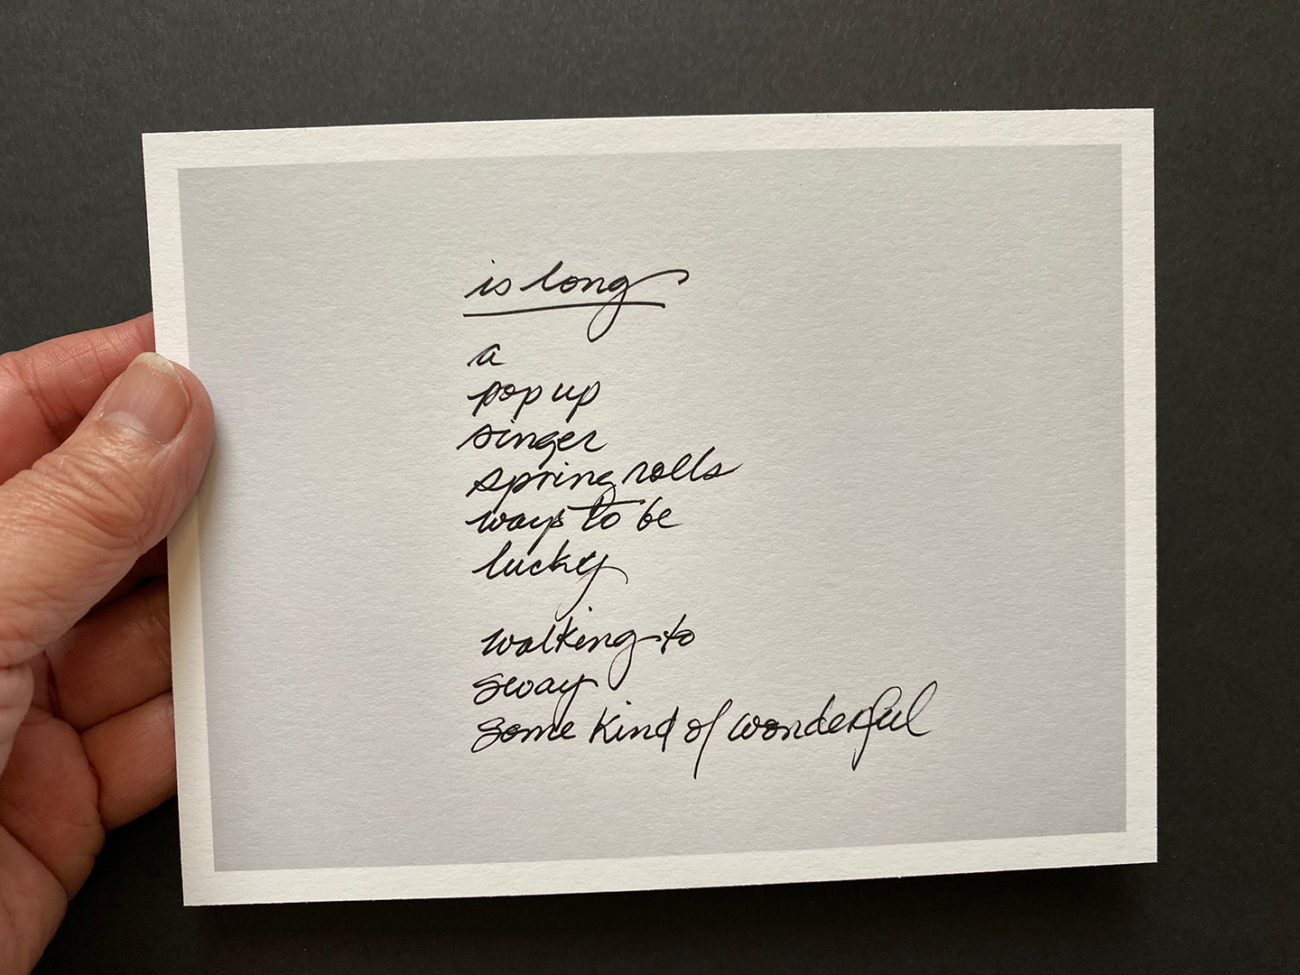 is long
a
pop up
singer
spring rolls
ways to be
lucky
walking to
sway
some kind of wonderful